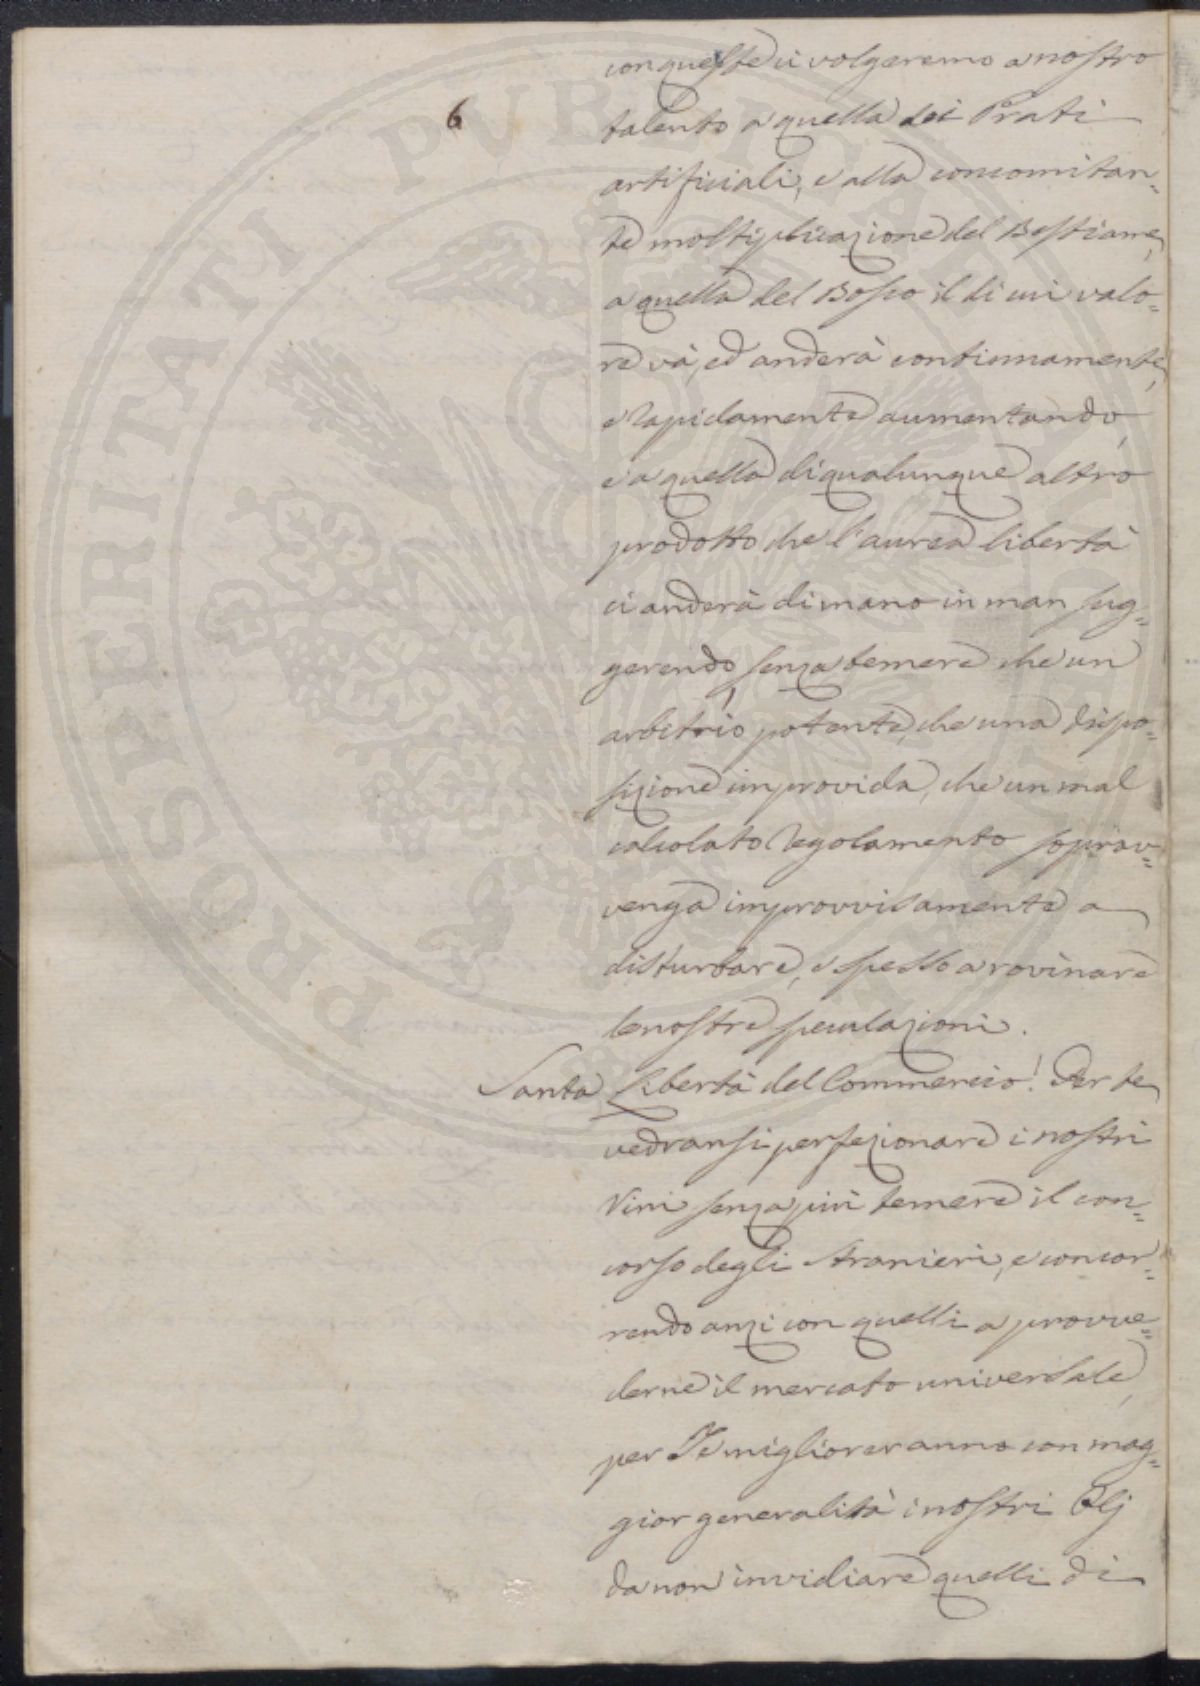 6
con queste ci volgeremo a nostro
talento a quella dei Prati
artificiali, e alla concomitan=
te moltiplicazione del Bestiame,
a quella del Bosco il di cui valo=
re và, ed anderà continuamente,
e rapidamente aumentando,
e a quella di qualunque altro
prodotto che l'aurea libertà
ci anderà di mano in man sug=
gerendo, senza temere che un
arbitrio potente, che una dispo=
sizione improvida, che un mal
calcolato regolamento soprav=
venga improvvisamente a
disturbare, e spesso a rovinare
le nostre speculazioni.
Santa Libertà del Commercio! Per te
vedransi perfezionare i nostri
Vini senza più temere il con=
corso degli stranieri, e concor=
rendo anzi con quelli a provve=
derne il mercato universale,
per Te miglioreranno con mag=
gior generalità i nostri Olj
da non invidiare quelli di
PROSPERITATI PVBLICAE